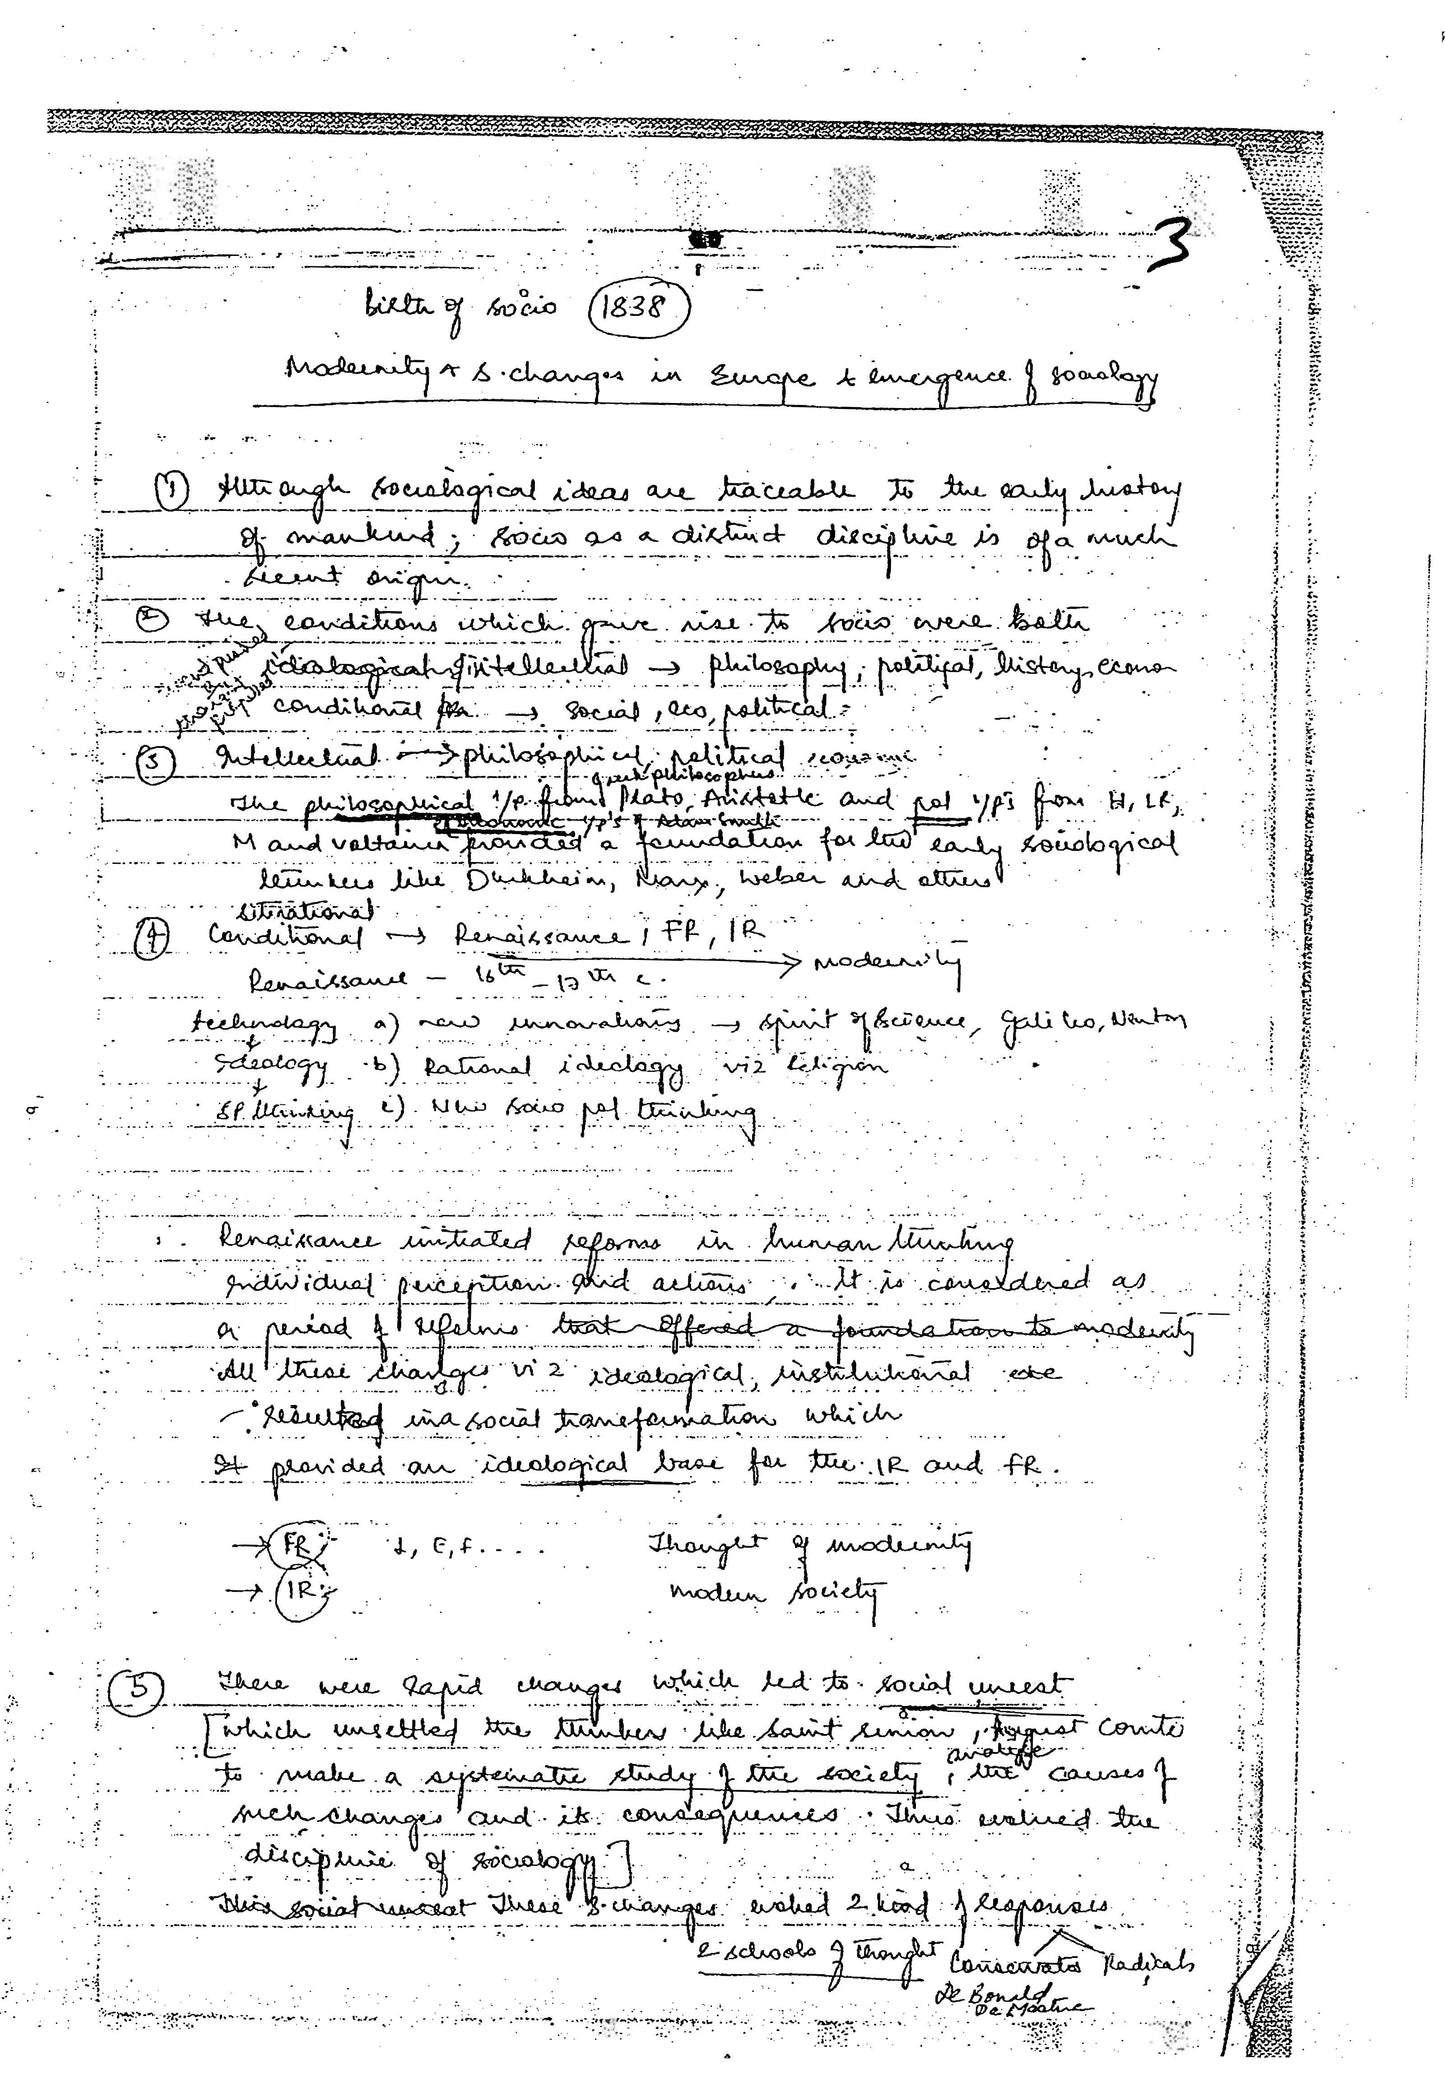 3
Birth of socio 1838
Modernity & S. changes in Europe & emergence of sociology
① Although sociological ideas are traceable to the early history
of mankind; socio as a distinct discipline is of a much
recent origin.
② The conditions which gave rise to socio were both
ideological / intellectual → philosophy, political, history, econo
conditional → social, eco, political
③ Intellectual → philosophical, political economic
Greek philosophers
The philosophical i/p from Plato, Aristotle and pol i/p's from H, LR,
economic i/p's of Adam Smith
M and voltaire provided a foundation for the early sociological
thinkers like Durkheim, Marx, Weber and others
situational
④ Conditional → Renaissance, FR, IR
→ modernity
Renaissance - 16th - 17th c.
technology a) new innovations → spirit of science, Galileo, Newton
↓
Ideology b) Rational ideology viz religion
↓
SP thinking c) New socio pol thinking
Renaissance initiated reforms in human thinking
individual perception and actions, It is considered as
a period of reforms that offered a foundation to modernity
All these changes viz ideological, institutional etc
- resulted in a social transformation which
It provided an ideological base for the IR and FR.
→ FR: L, E, F.... Thought of modernity
→ IR: modern society
⑤ There were rapid changes which led to social unrest
[which unsettled the thinkers like Saint Simon, August Comte
analyse
to make a systematic study of the society, the causes of
such changes and its consequences. Thus evolved the
discipline of sociology]
This social unrest These S. changes evoked 2 kind of responses
2 schools of thought Conservats Radicals
De Bonald
De Maistre